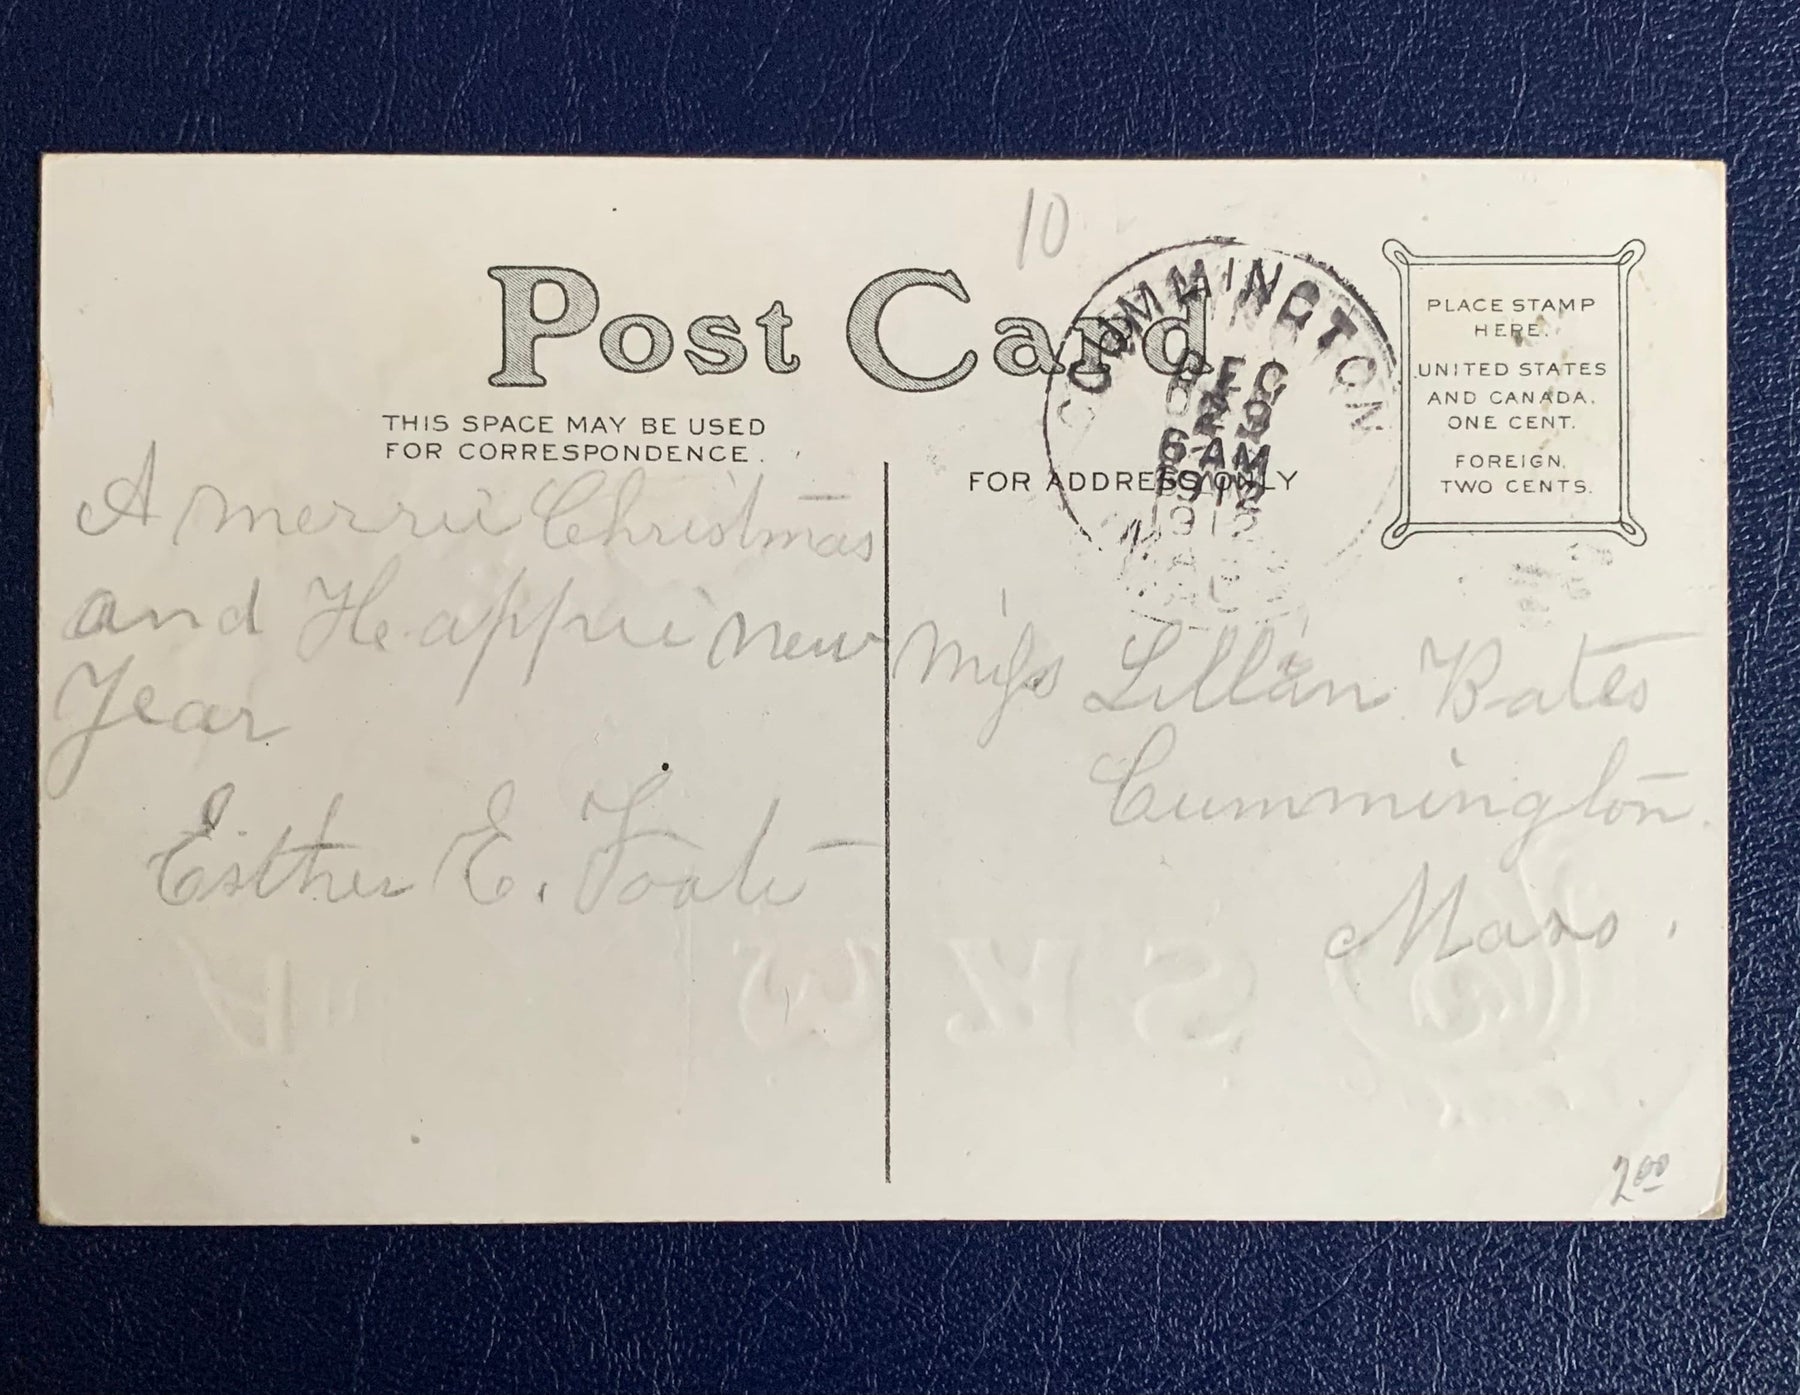 10
Post Card
CUMMINGTON
DEC
29
6 AM
1912
PLACE STAMP
HERE.
UNITED STATES
AND CANADA.
ONE CENT.
FOREIGN,
TWO CENTS.
THIS SPACE MAY BE USED
FOR CORRESPONDENCE.
FOR ADDRESS ONLY
A merrie Christmas
and Happie new
Year
Esther E. Foote
Miss Lillian Bates
Cummington
Mass.
2.00